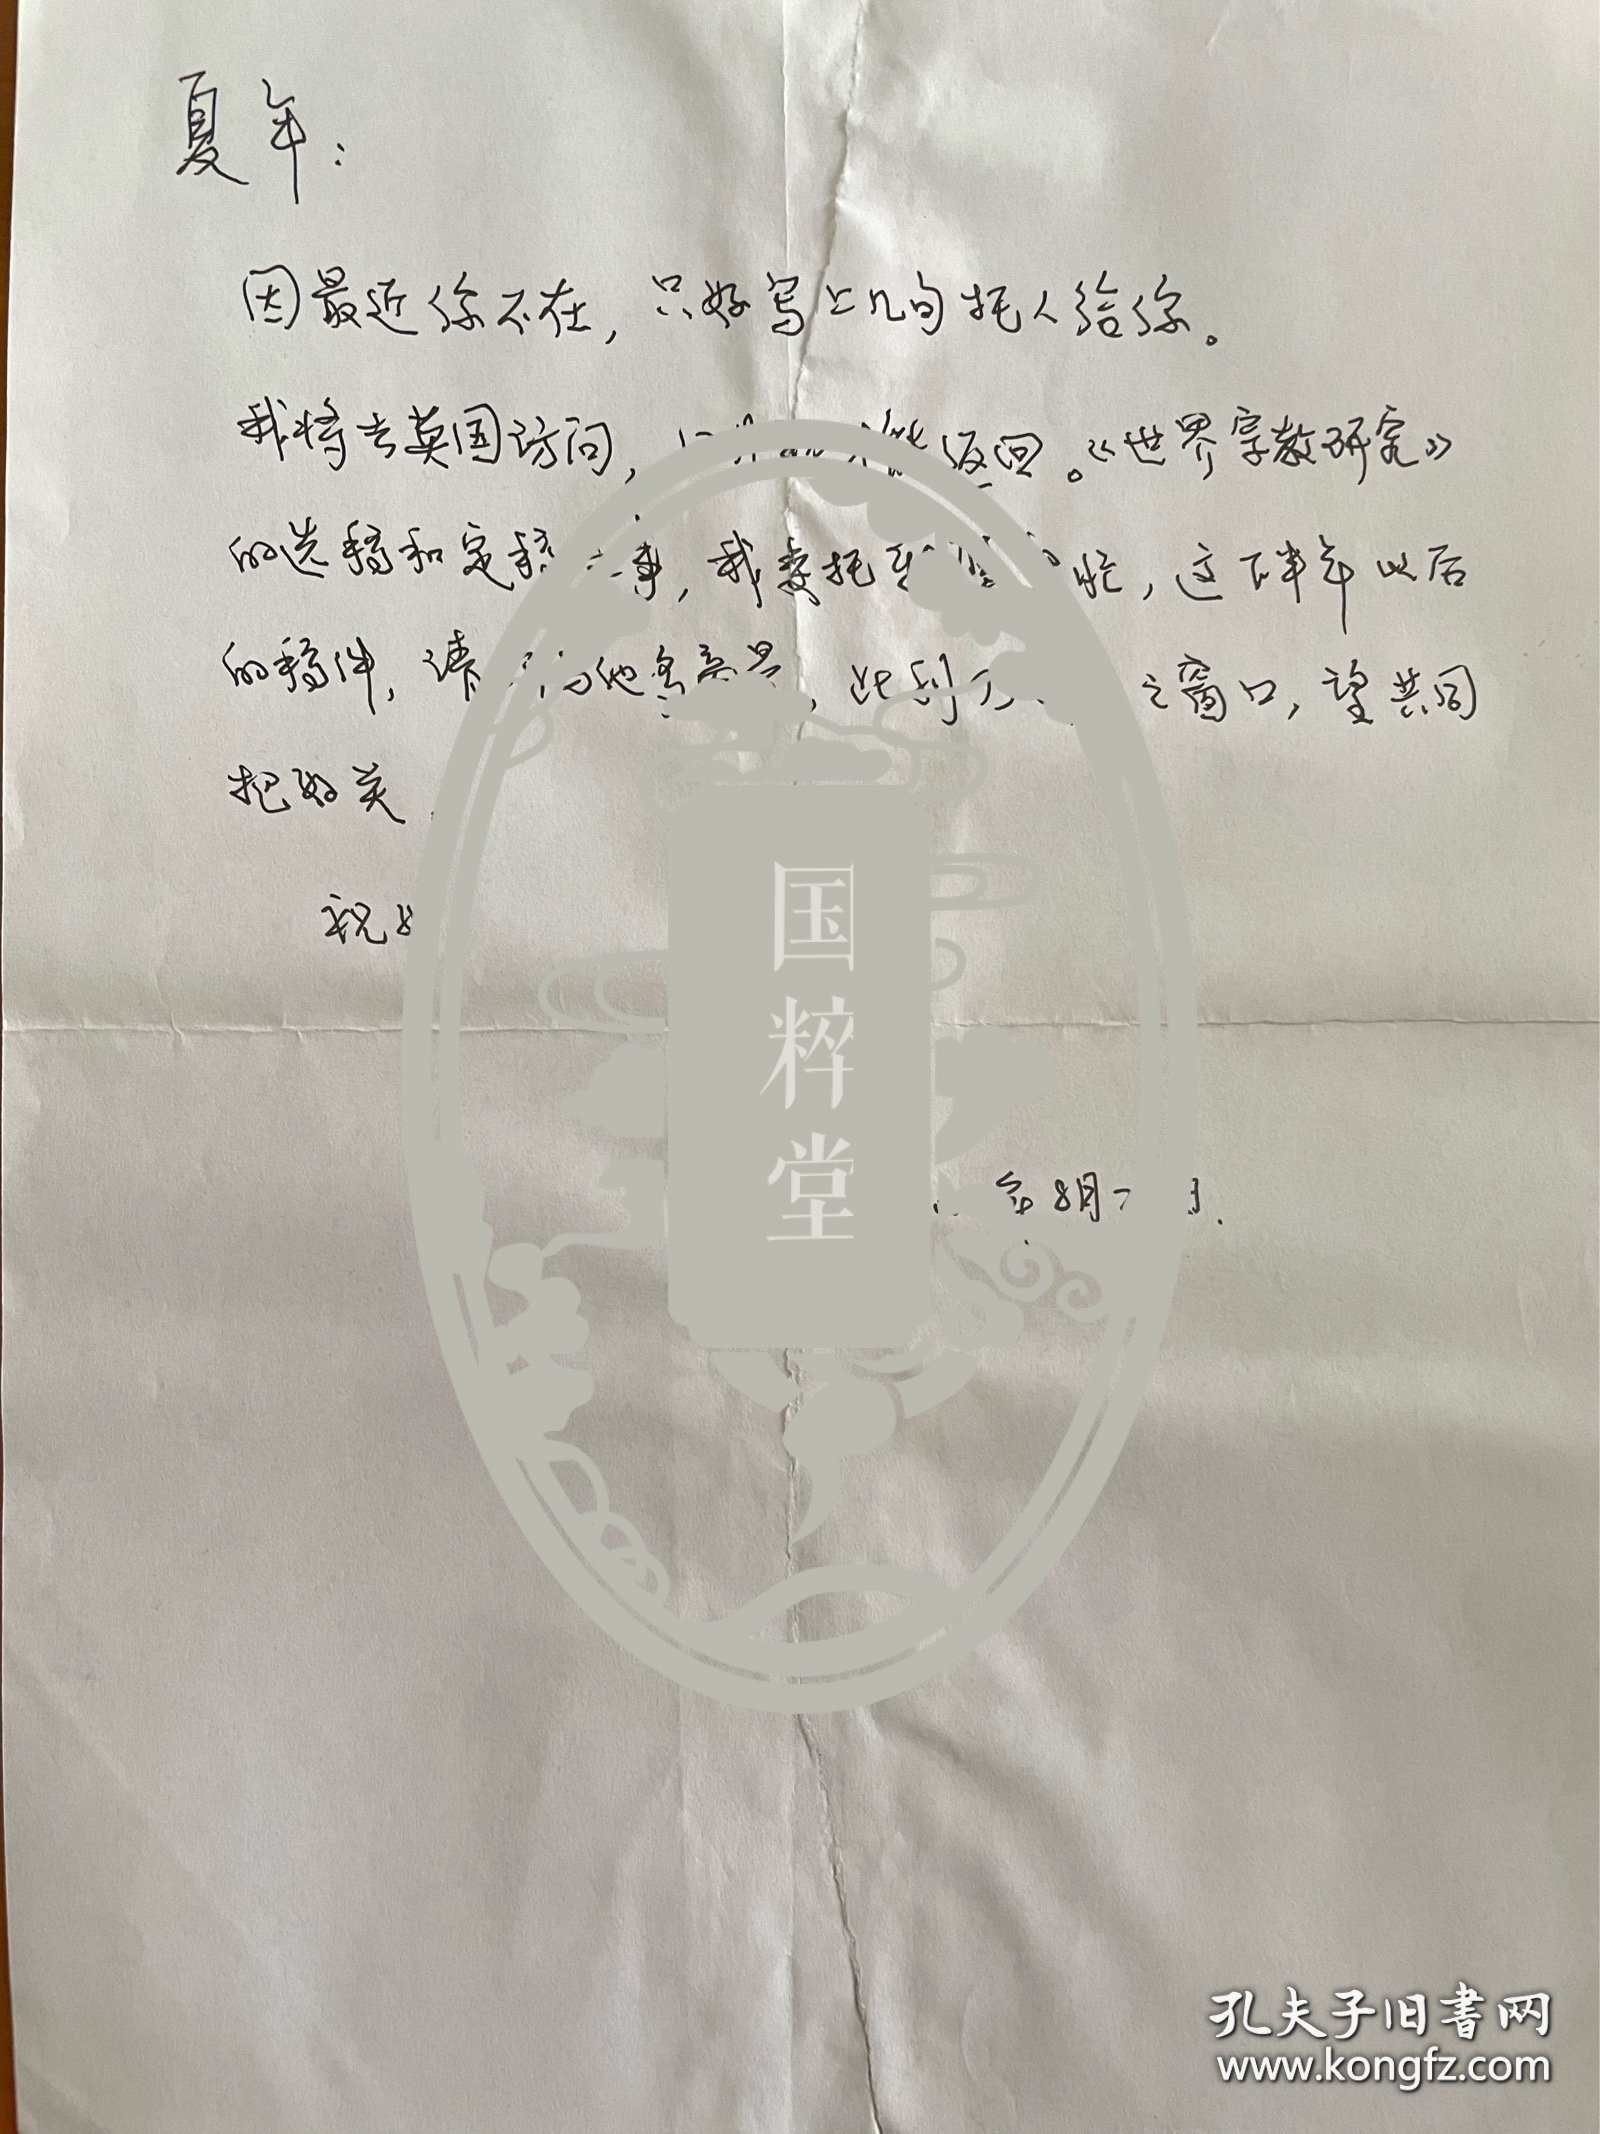 夏年：
因最近你不在，只好写上几句托人给你。
我将去英国访问，返回。《世界宗教研究》
的选稿和定稿事，我委托忙，这下半年以后
的稿件，请他，此刊之窗口，望共同
把好关
祝
年8月
国粹堂
孔夫子旧书网
www.kongfz.com